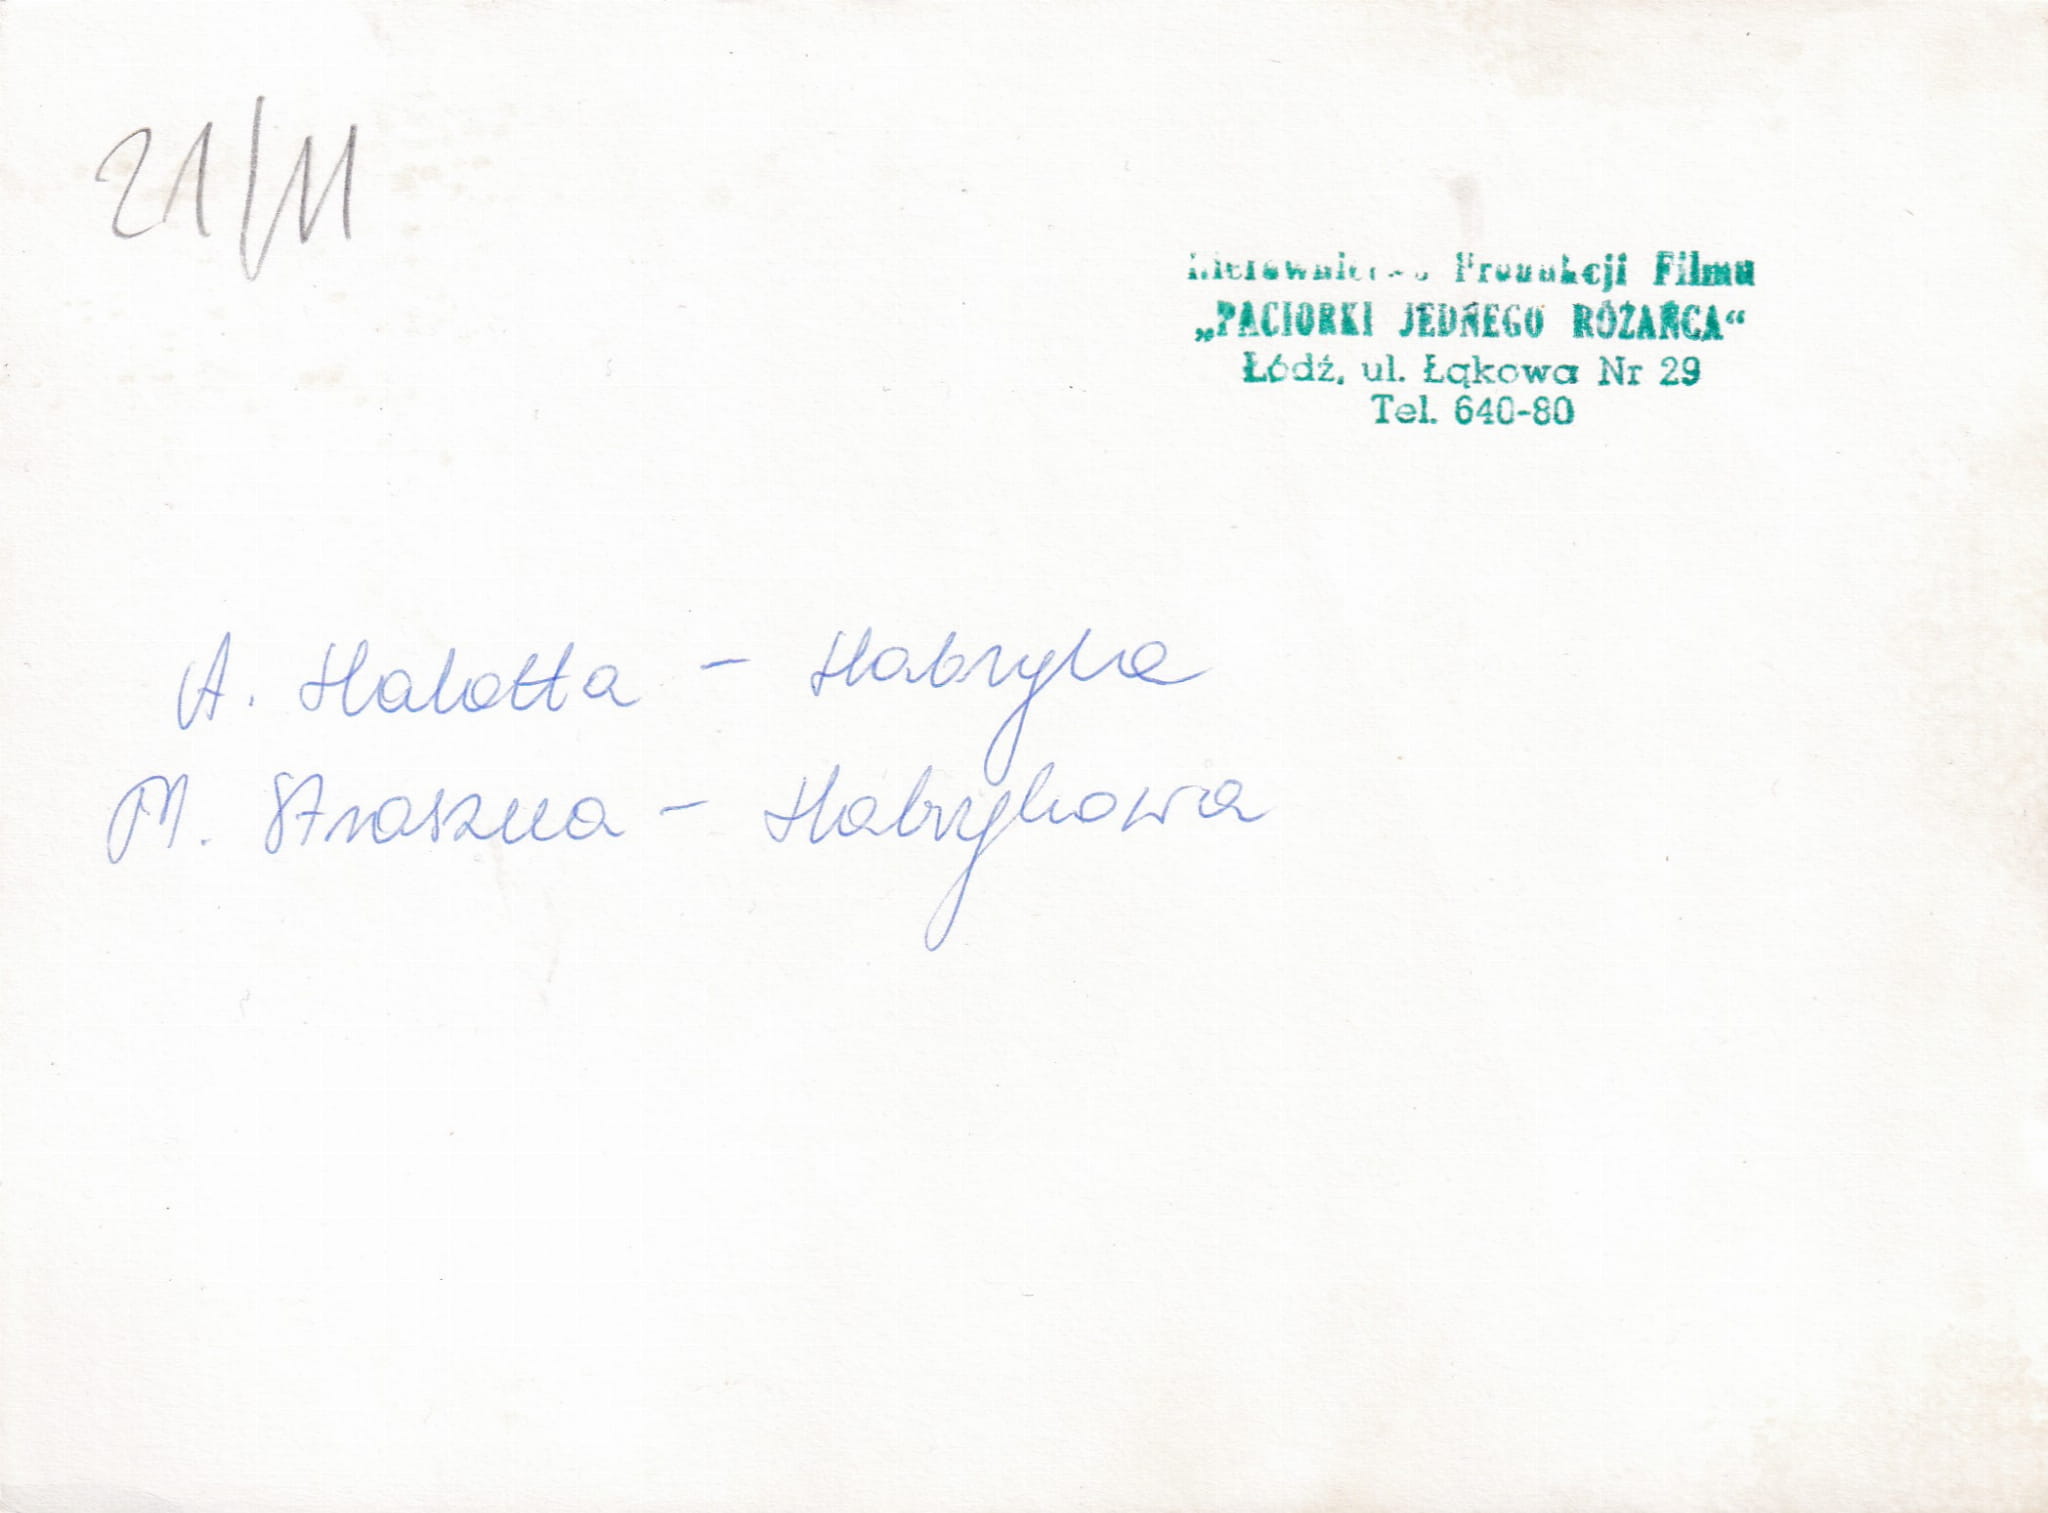 21/11
Kierownictwo Produkcji Filmu
„PACIORKI JEDNEGO RÓŻAŃCA“
Łódź, ul. Łąkowa Nr 29
Tel. 640-80
A. Halotta - Habryka
M. Straszna - Habrykowa